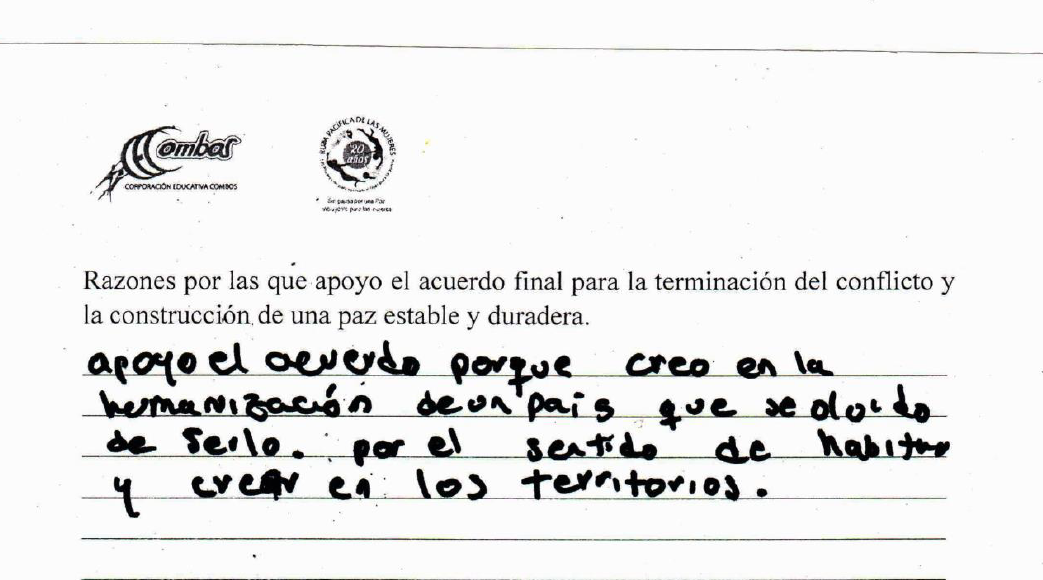 Combos
CORPORACIÓN EDUCATIVA COMBOS
RUTA PACIFICA DE LAS MUJERES
20
años
Razones por las que apoyo el acuerdo final para la terminación del conflicto y
la construcción de una paz estable y duradera.
apoyo el acuerdo porque creo en la
humanización de un país que se olvido
de serlo. por el sentido de habitar
y crear en los territorios.